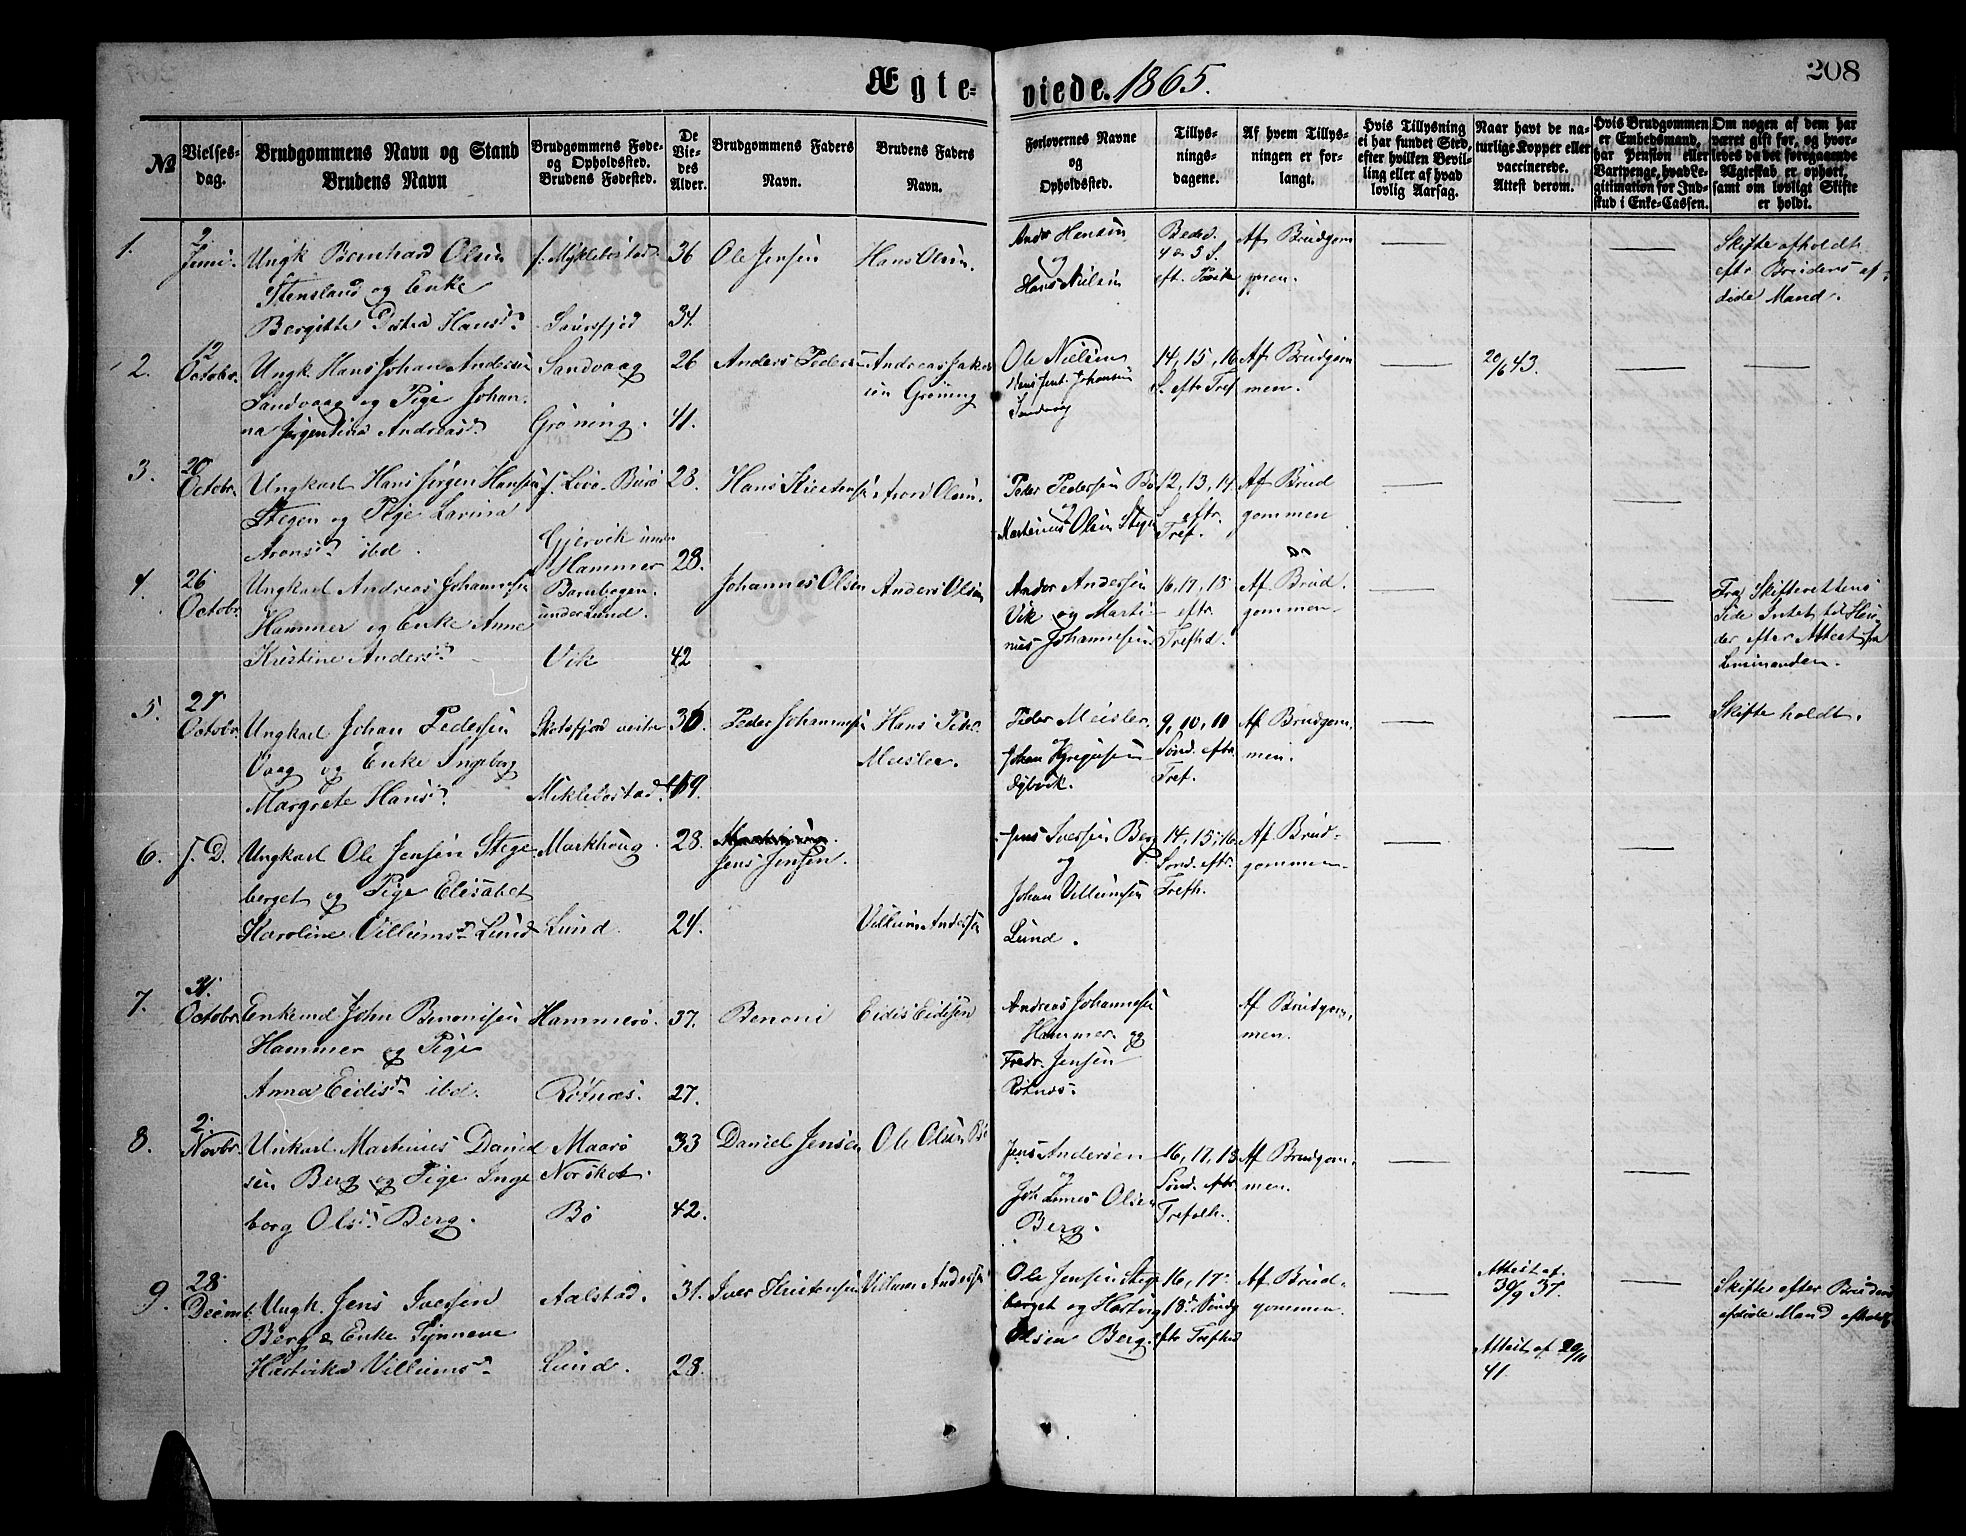 Ægte-viede. 1865.
208
№
Vielses-
dag.
Brudgommens Navn og Stand
Brudens Navn
Brudgommens Føde-
og Opholdssted.
Brudens Fødested.
De
Vie-
des
Alder.
Brudgommens Faders
Navn.
Brudens Faders
Navn.
Forlovernes Navne
og
Opholdssted.
Tillys-
nings-
dagene.
Af hvem Tillys-
ningen er for-
langt.
Hvis Tillysning
ei har fundet Sted,
efter hvilken Bevil-
ling eller af hvad
lovlig Aarsag.
Naar havt de na-
turlige Kopper eller
vaccinerede.
Attest derom.
Hvis Brudgommen
er Embedsmand,
har Pension eller
Vartpenge, hvad Le-
gitimation for Ind-
skud i Enke-Cassen.
Om nogen af dem har
været gift før, og hvor-
ledes da det foregaaende
Ægteskab er ophørt,
samt om lovligt Skifte
er holdt.
1.
2
Juni.
Ungk Bernhard Olsen
Stensland og Enke
Bergitte Hansd.
f. Myklebostad
36
34.
Ole Jensen
Hans Olsen.
Andr Hansen
og
Hans Nielsen
4 o 5 S.
eft. Paske
Af Brudgom
men.
Skifte afholdt
eftr Brudens af-
døde Mand.
2.
12
Octobr.
Ungk. Hans Johan Andersen
Sandvaag og Pige Johan-
na Jørgentine Andreasd.
Sandvaag
Grøning.
26
41.
Anders Pedersen
Andreas Jakob
sen Grøning
Ole Nielsen
Johansen
Sandvag
14, 15, 16
S. eftr Tref
Af Brudgom
men.
20/6 43.
3.
20
Octobr.
Ungkarl Hans Jørgen Hansen
Stegen og Pige Larina
Aronsd. ibd.
Gjervik under
Hammer
28.
28.
Hans Kristensen
Aron Olsen.
Peder Pedersen Bø
og
Martinus Olsen Stegen
12, 13, 14
S eftr.
Tref.
Af Brud
gommen
4.
26
Octobr.
Ungkarl Andreas Johannesen
Hammer og Enke Anne
Kristine Andersd.
Barnbogen
under Lund.
Vik
42
Johannes Olsen
Anders Olsen
Andor Andersen
Vik og Marti-
nus Johannesen.
16, 17, 18
eftr
Trefhd.
Af Brud.
gommen
Fra Skifterettens
Side Intet til Hin-
der efter Attest fra
Lensmanden.
5.
27
Octobr.
Ungkarl Johan Pedersen
Vaag og Enke Ingeborg
Margrete Hansd.
Skotsfjord vestre
Miklebostad.
36.
49.
Peder Johannesen
Hans Peder
Meisler.
Peder Meisler.
og
Johan
Dybvik.
9, 10, 11
Sønd. eftr
Tref.
Af Brudgom-
men.
Skifte holdt.
6.
s. D.
Ungkarl Ole Jensen Stege
berget og Pige Elisabet
Karoline Villumsd. Lund
Markhoug.
Lund.
28.
24.
Jens Jensen.
Villum Andersen
Jens Iversen Berg
og
Johan Villumsen
Lund.
14, 15, 16
Sønd. eftr.
Trefh.
Af Brud-
gommen
7.
31.
Octobr.
Enkemd John Benonisen
Hammer og Pige
Anna Eidisd. ibd.
Hammerø.
Røtnæs.
37.
27.
Benoni
Eidis Eidisen
Andreas Johannesen
Hammer og
Fredr. Jensen
Røtnæs.
Af Brudgom-
men.
8.
2.
Novbr.
Unkarl Martinus Daniel
sen Berg og Pige Inge
borg Olsd. Berg.
Maarø
Norskot.
Bø
33
42.
Daniel Jensen
Ole Olsen Bø
Jens Andersen
og
Johannes Olsen
Berg.
16, 17, 18
Sønd. eftr
Trefolh.
Af Brudgom-
men.
9.
28
Decmb.
Ungk. Jens Iversen
Berg & Enke Synneve
Hartvika Villumsd.
Aalstad.
Lund.
31.
28.
Iver Kristensen
Villum Andersen
Ole Jensen Stege
berget og Hartvig
Olsen Berg.
16, 17
18 Søndg
eftr Trefhed
Af Brud-
gommen.
Attest af
30/9 37.
Attest af 29/11
41.
Skifte efter Brudens
afdøde Mand afholdt